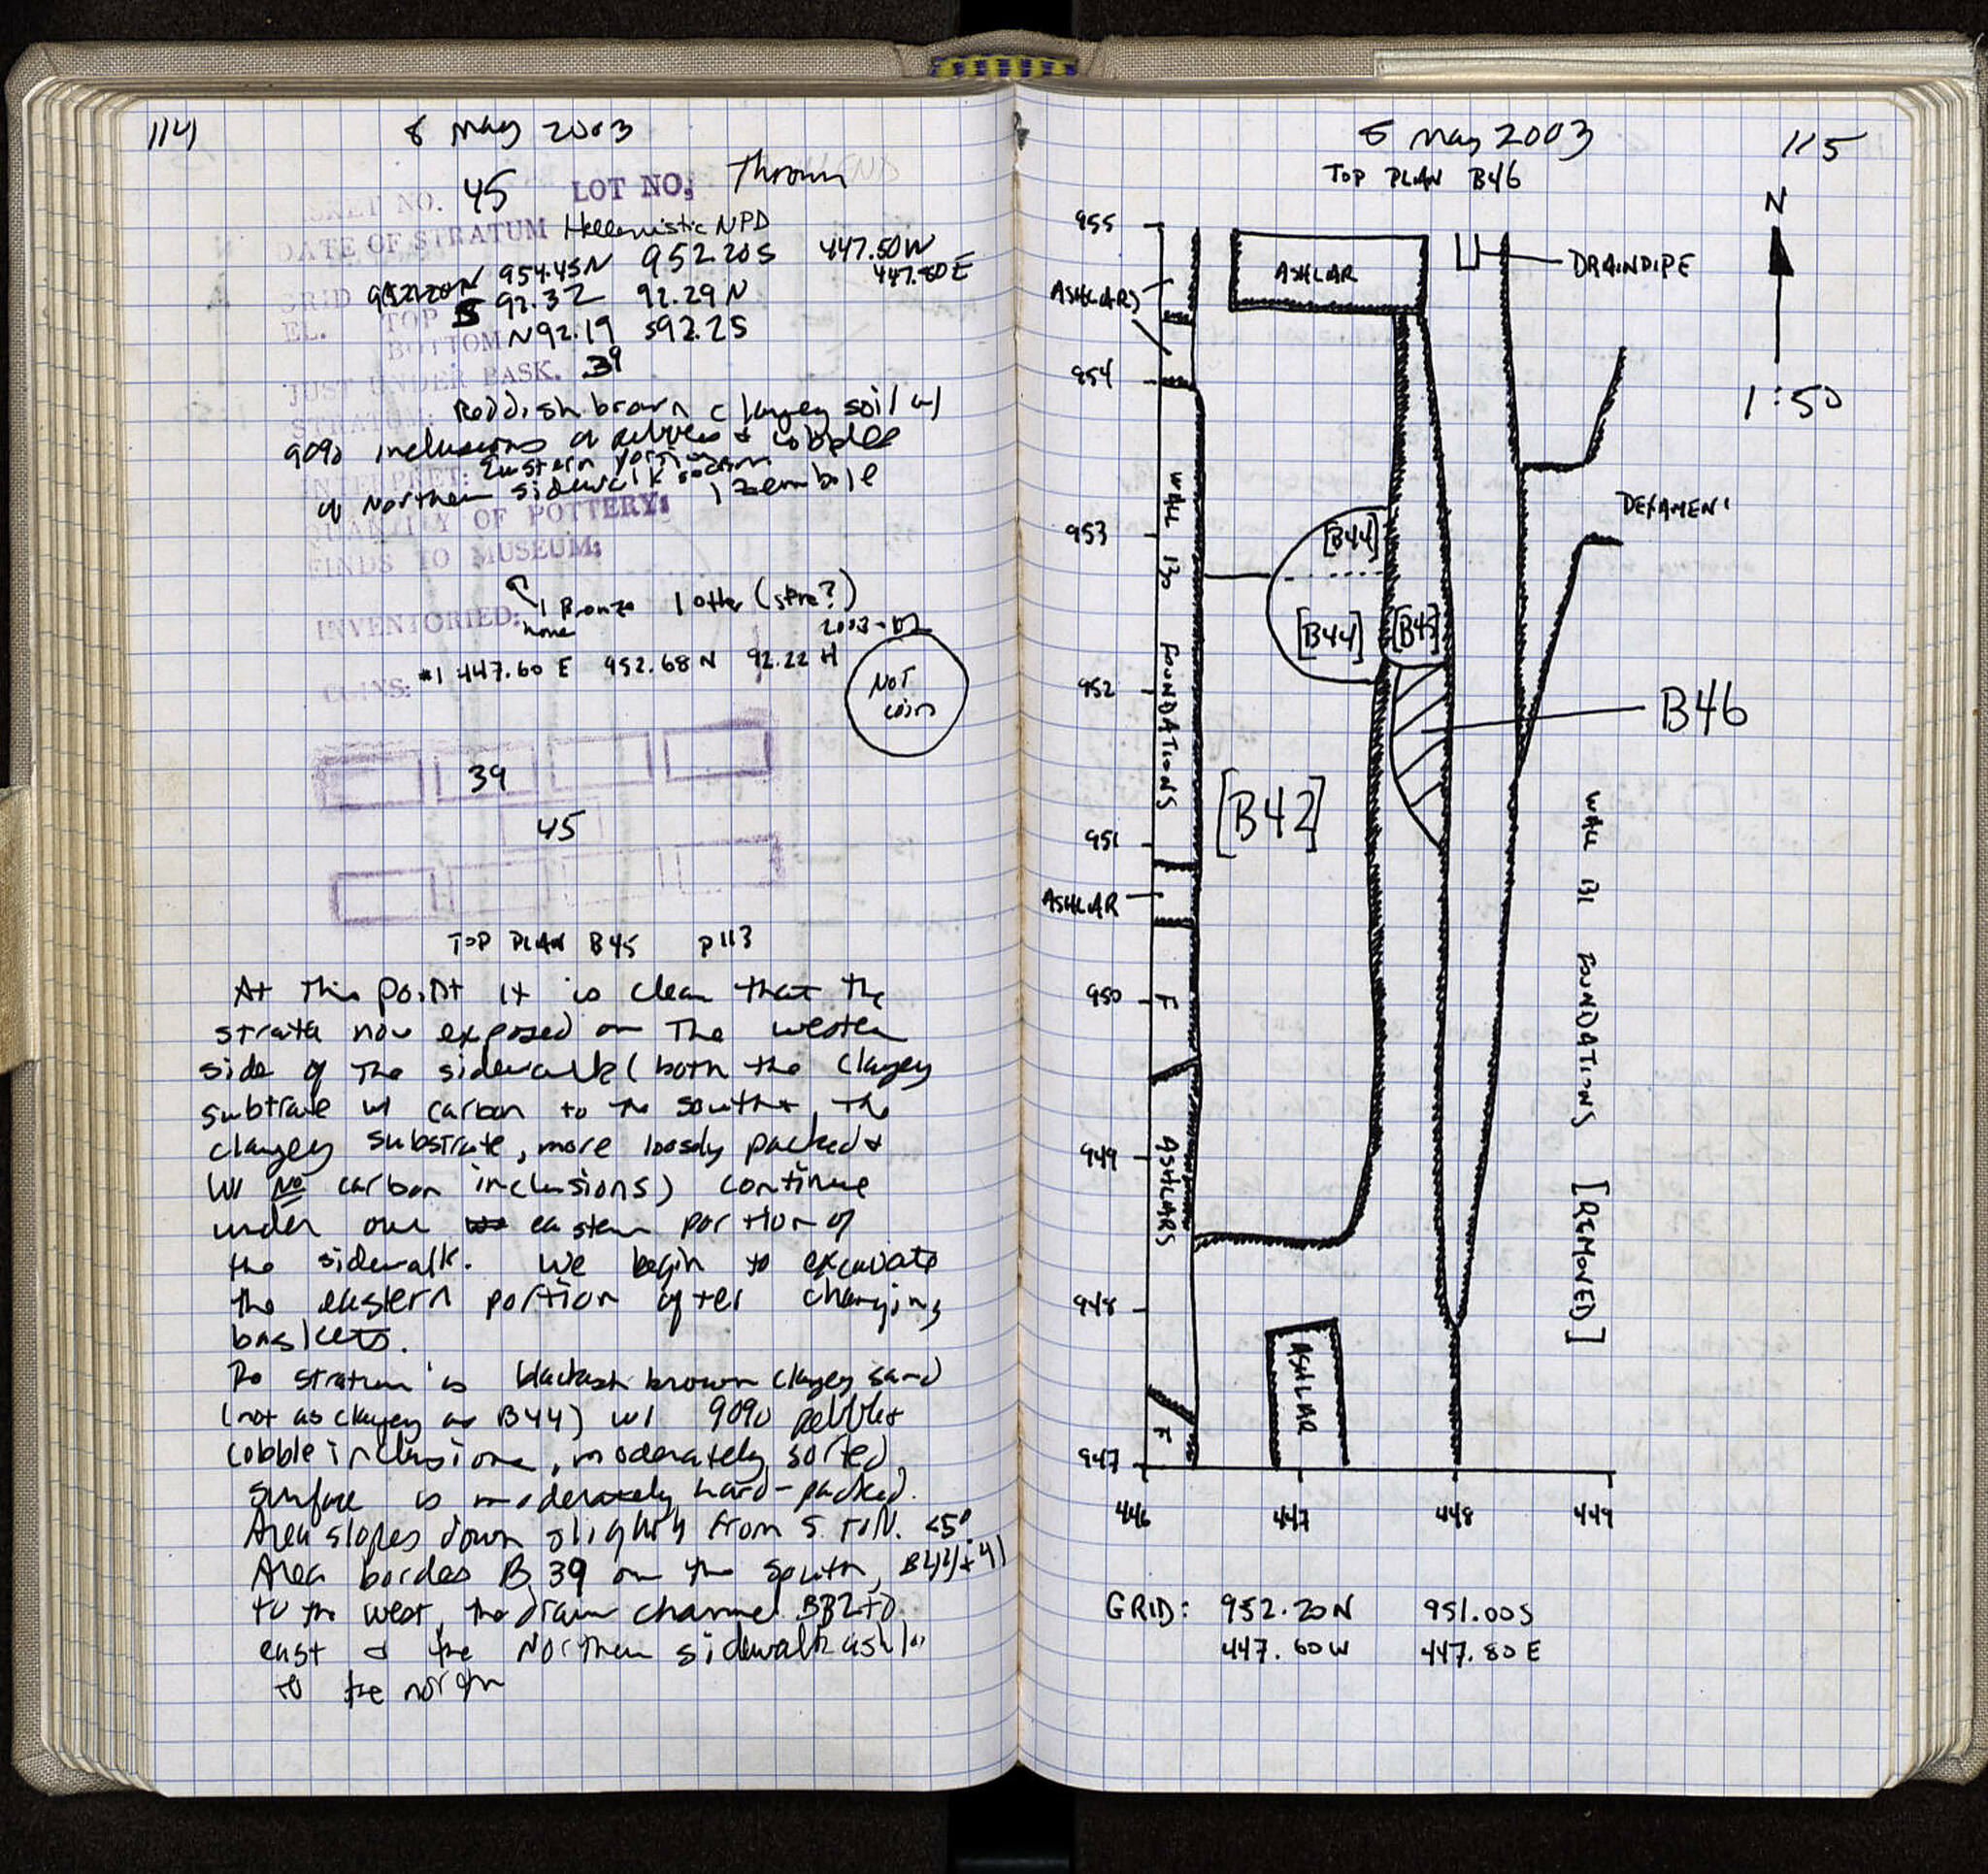 114
8 May 2003
BASKET NO. 45 LOT NO: Thrown
DATE OF STRATUM Hellenistic NPD
GRID 954.45N 952.20S 447.50W
447.80E
EL. TOP S 92.32 92.29 N
BOTTOM N 92.19 S 92.25
JUST UNDER BASK. 39
STRATUM: Reddish brown clayey soil w/
90% inclusions of pebbles + cobbles
INTERPRET: Eastern portion
of Northern sidewalk
QUANTITY OF POTTERY: 1 zembole
FINDS TO MUSEUM:
1 Bronze 1 other
INVENTORIED: none
COINS: #1 447.60 E 952.68 N 92.22 H
NOT
coin
39
45
TOP PLAN B45 p113
At this point it is clear that the
strata now exposed on the western
side of the sidewalk (both the clayey
substrate w/ carbon to the south +, the
clayey substrate, more loosely packed +
w/ NO carbon inclusions) continue
under our eastern portion of
the sidewalk. We begin to excavate
the eastern portion after changing
baskets.
stratum is blackish brown clayey sand
(not as clayey as B44) w/ 90% pebble +
cobble inclusions, moderately sorted.
Surface is moderately hard-packed.
Area slopes down slightly from S. to N. <5°
Area borders B 39 on the south, B44 + 41
to the west, the drain channel to
east + the Northern sidewalk ashlar
to the north
5 May 2003
115
TOP PLAN B46
N
1:50
955
954
953
952
951
950
949
948
947
446
447
448
449
ASHLARS
ASHLAR
DRAINDIPE
WALL 130 FOUNDATIONS
[B44]
[B44]
[B45]
B46
[B42]
DEXAMENI
ASHLAR
F
ASHLARS
F
ASHLAR
WALL 131 FOUNDATIONS [REMOVED]
GRID: 952.20N 951.00S
447.60W 447.80E